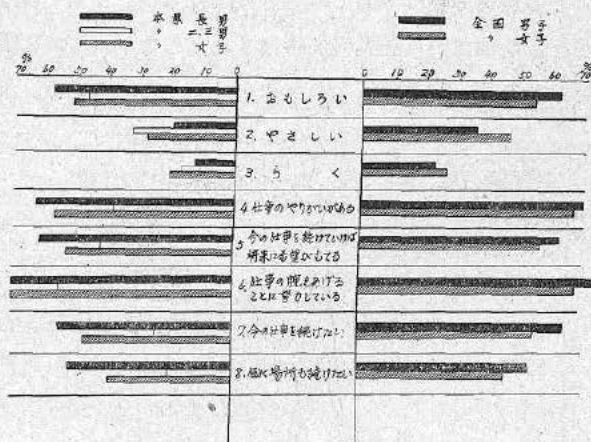 本県 長男
〃 二、三男
〃 女子
全国 男子
〃 女子
% 70 60 50 40 30 20 10 0
0 10 20 30 40 50 60 70 %
1. おもしろい
2. やさしい
3. らく
4. 仕事のやりがいがある
5 今の仕事を続けていけば
将来に希望がもてる
6. 仕事の腕をあげる
ことに努力している
7. 今の仕事を続けたい
8. 場所も続けたい